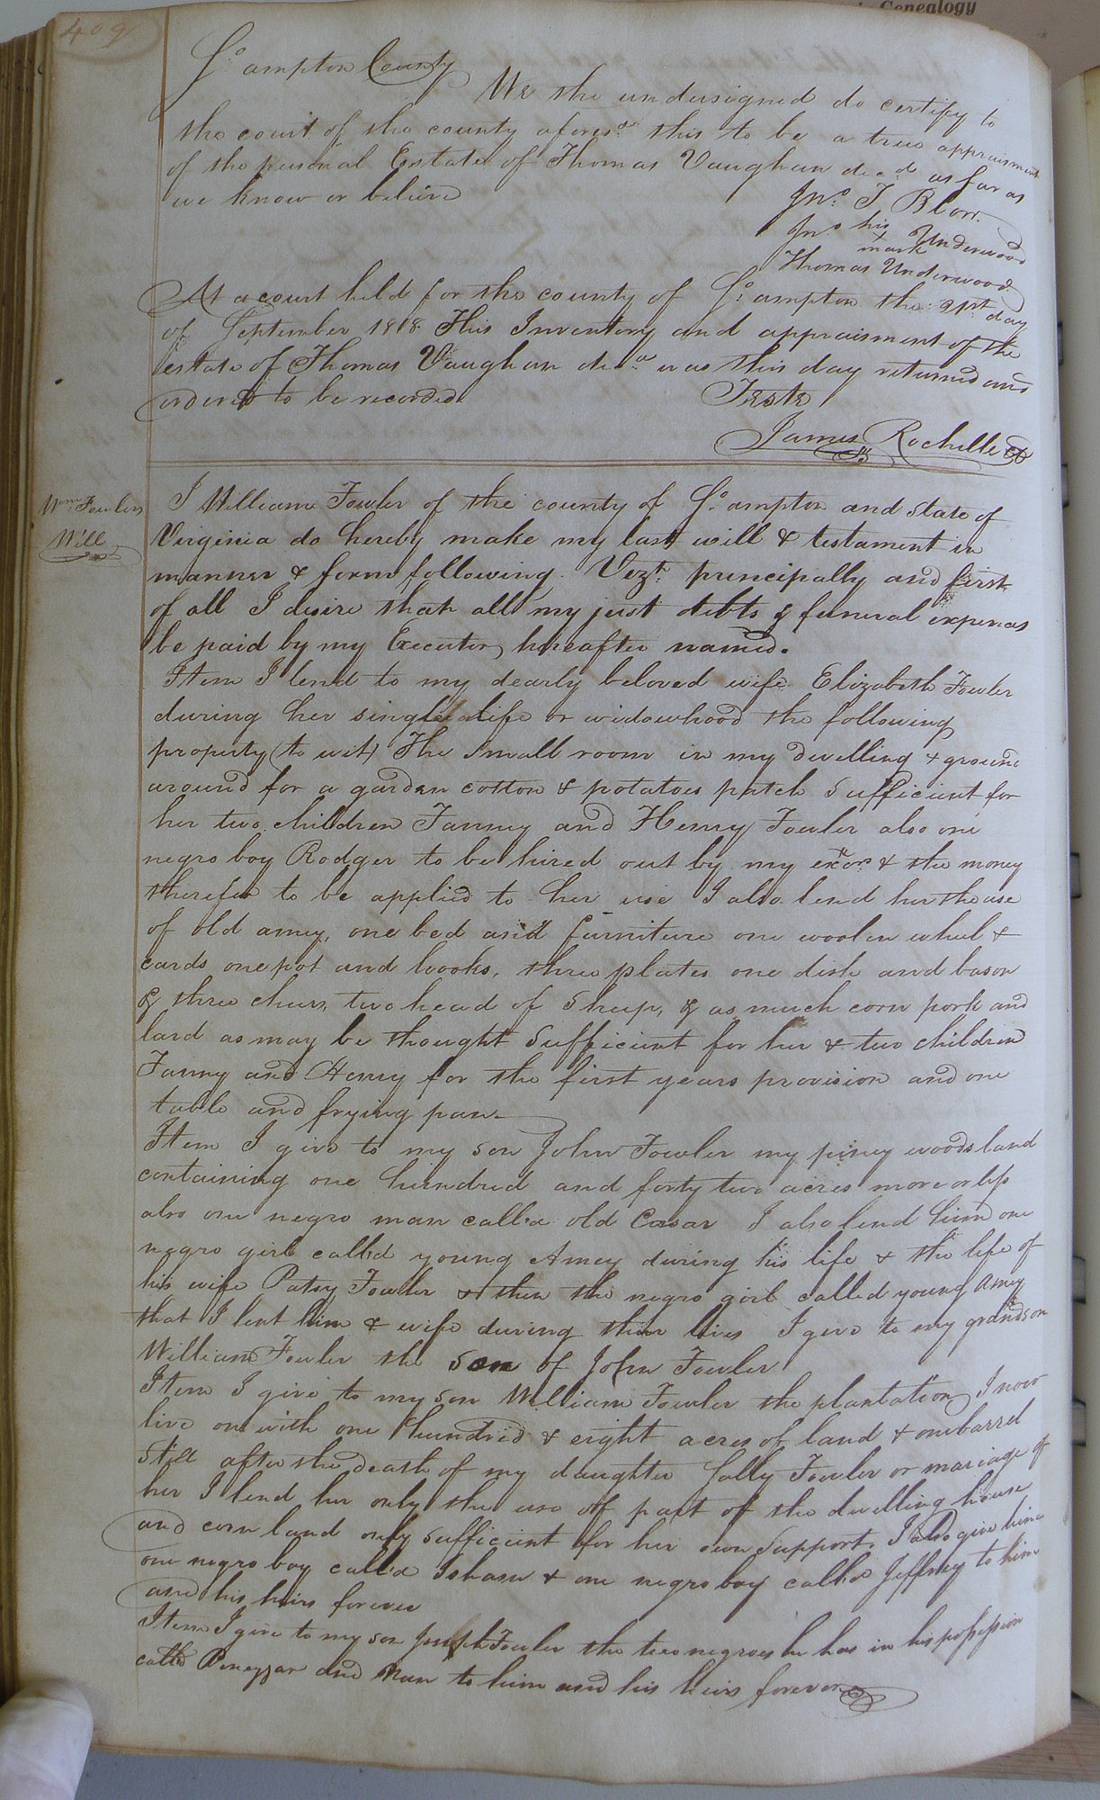 Genealogy
409
So ampton County
We the undersigned do certify to
the court of the county aforesd this to be a true appraisment
of the personal Estate of Thomas Vaughan decd as far as
we know or believe
Jno. T Blow
Jno his x mark Underwood
Thomas Underwood
At a court held for the county of So ampton the 21st day
of September 1818 This Inventory and appraisment of the
estate of Thomas Vaughan decd was this day returned and
ordered to be recorded
Teste
James Rochelle
Wm Fowlers
Will
I William Fowler of the county of So ampton and State of
Virginia do hereby make my last will & testament in
manner & form following. Vizt. principally and first
of all I desire that all my just debts & funeral expences
be paid by my Executor, hereafter named.
Item I lend to my dearly beloved wife Elizabeth Fowler
during her single life or widowhood the following
property (to wit) The small room in my dwelling & ground
around for a garden cotton & potatoes patch Sufficient for
her two children Fanney and Henry Fowler also one
negro boy Rodger to be hired out by my exor. & the money
therefor to be applied to her use I also lend her the use
of old amey, one bed and furniture one woolen wheel &
cards one pot and hooks, three plates one dish and bason
& three chers, two head of Sheep, & as much corn pork and
lard as may be thought Sufficient for her & two children
Fanny and Henry for the first years provision and one
table and frying pan.
Item I give to my son John Fowler my piney woods land
containing one hundred and forty two acres more or less
also one negro man calld old Casar I also lend him one
negro girl calld young Amey during his life & the life of
his wife Patsy Fowler & then the negro girl called young Amey
that I lent him & wife during their lives I give to my grandson
William Fowler the Son of John Fowler
Item I give to my son William Fowler the plantation I now
live on with one hundred & eight acres of land & one barrel
Still after the death of my daughter Sally Fowler or mariage of
her I lend her only the use of part of the dwelling house
and corn land only sufficient for her own Support. I also give him
one negro boy calld Isham & one negro boy calld Jeffrey to him
and his heirs forever
Item I give to my son Joseph Fowler the two negroes he has in his possession
calld and Nan to him and his heirs forever